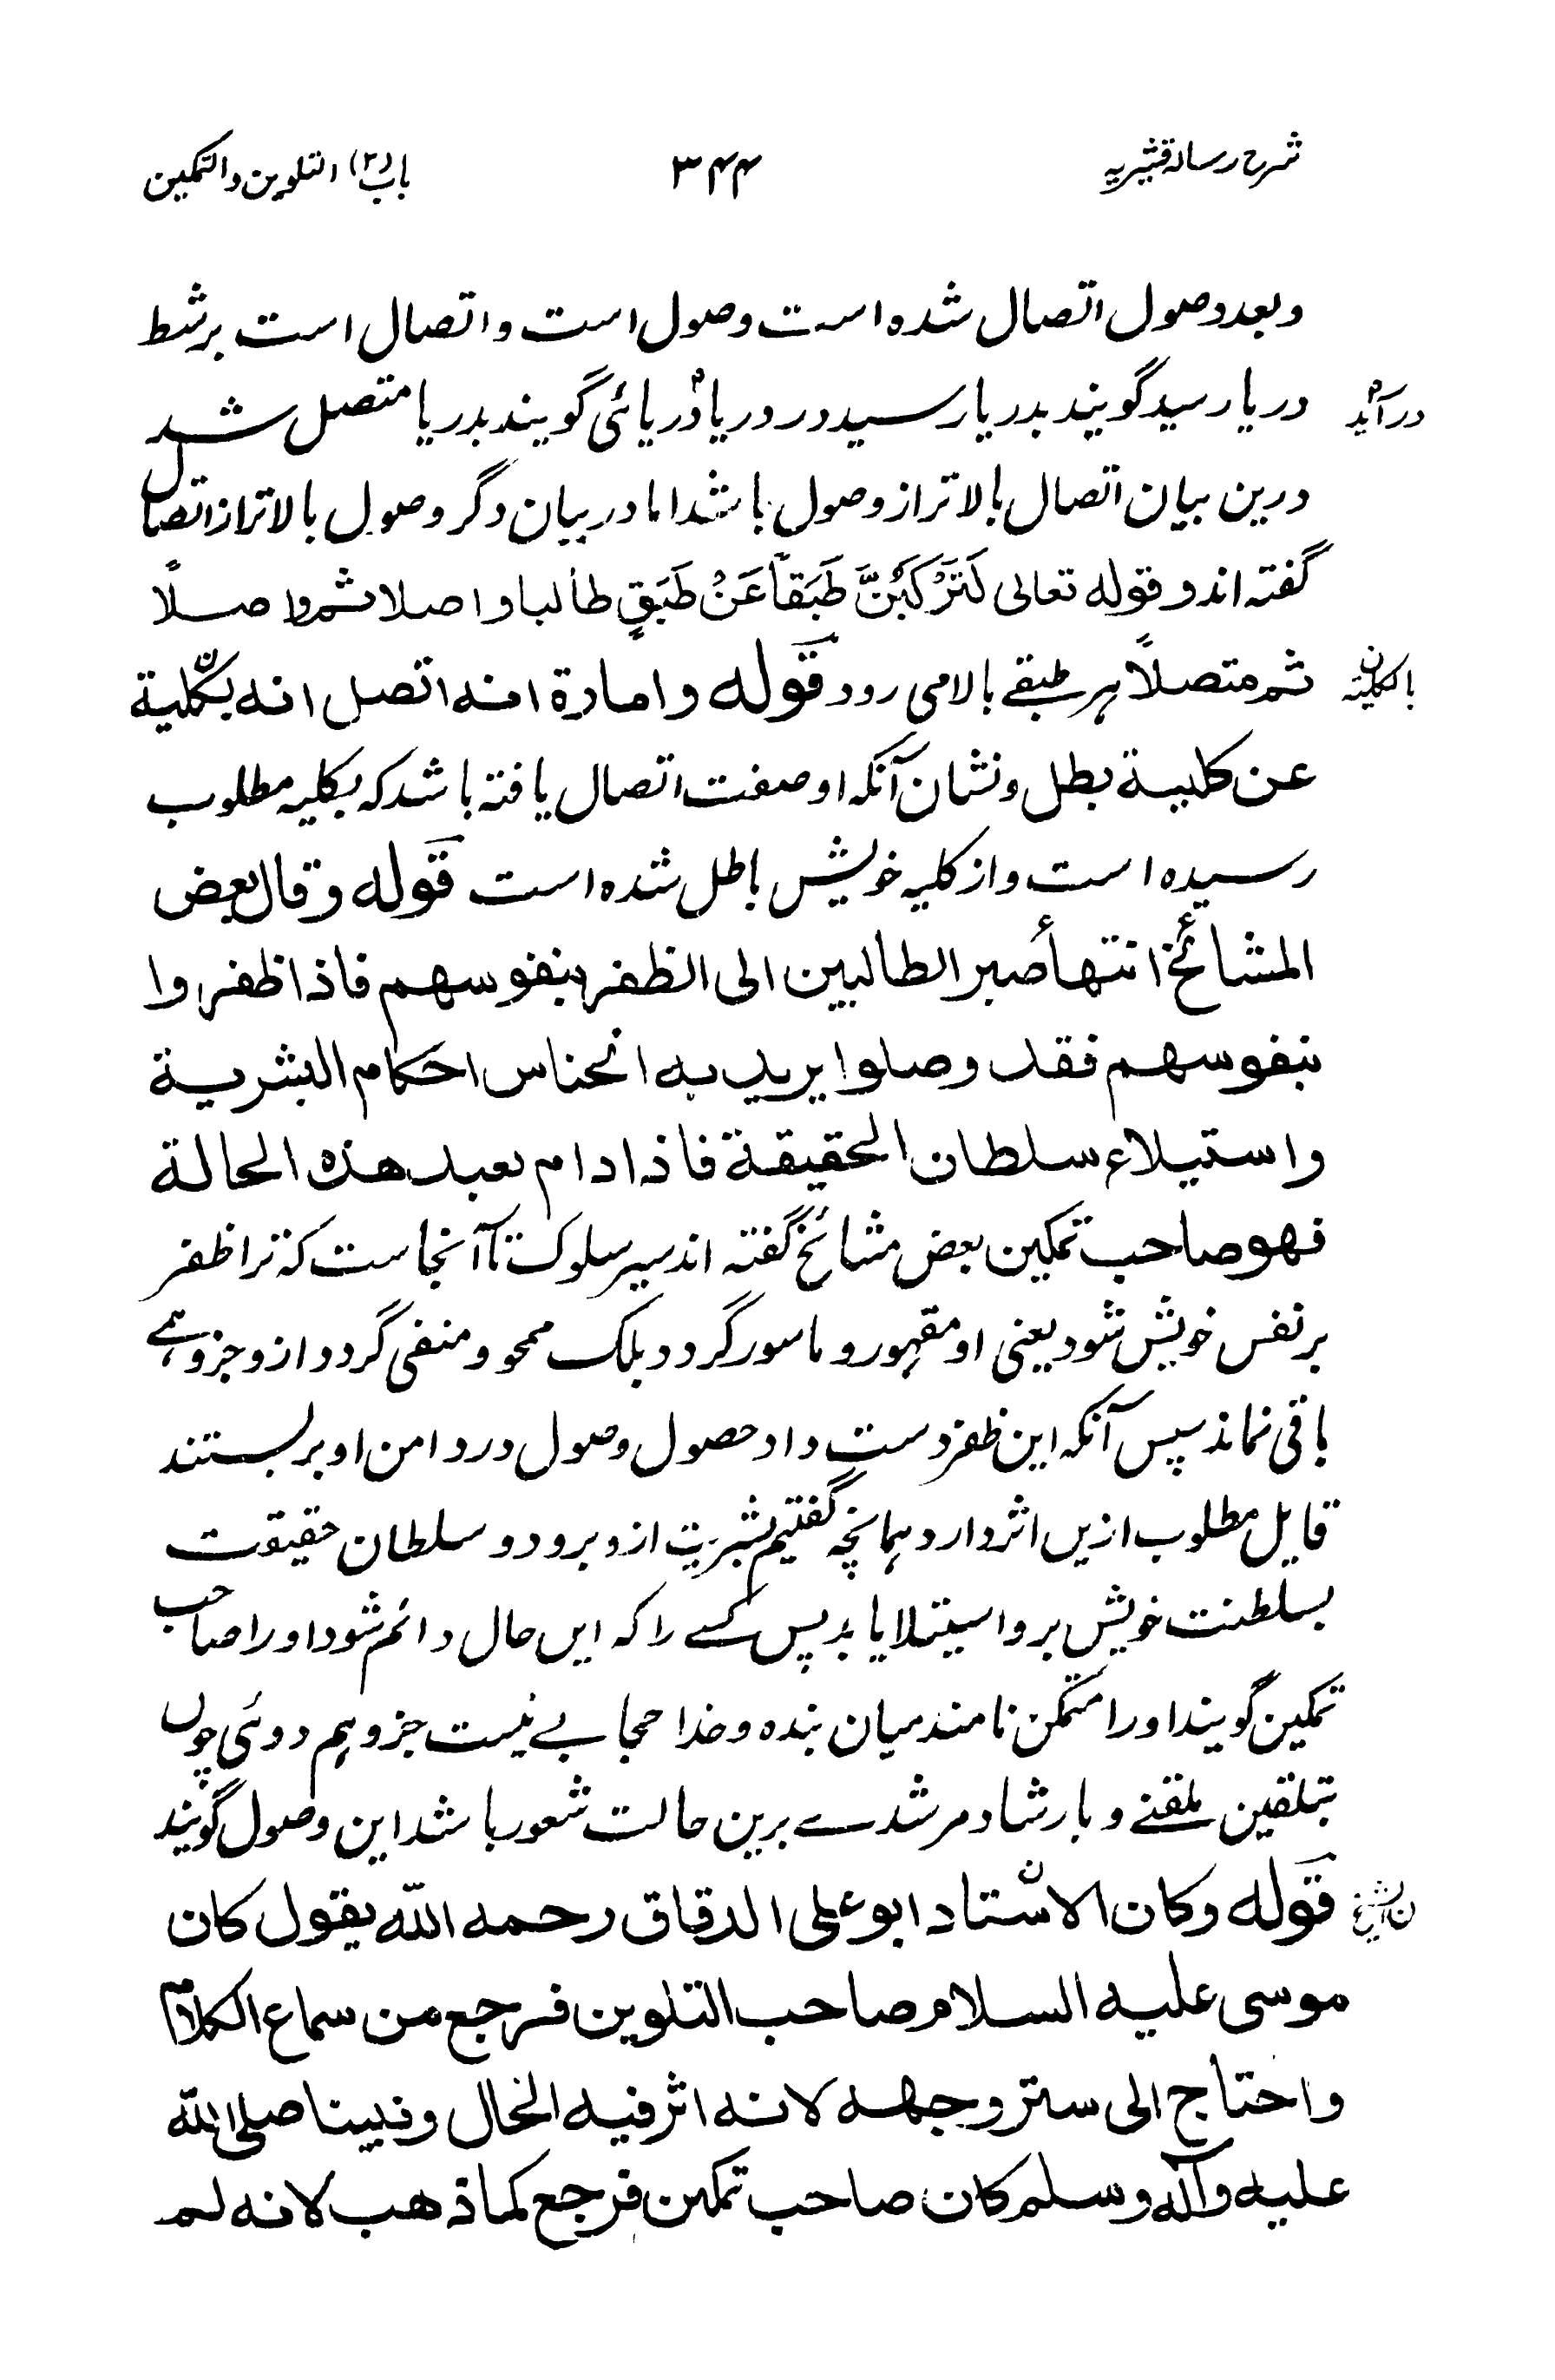 شرح رسالہ قشیریہ
۳۴۴
باب (۳) التلوین والتمکین
وبعد وصول اتصال شده است وصول است واتصال است بر شط
دریا رسید گویند بدریا رسید در و دریا دریائی گویند بدریا متصل شد
در آید
درین بیان اتصال بالاتر از وصول باشد اما در بیان دگر وصول بالاتر از اتصال
گفته اند و قوله تعالی لَتَرْكَبُنَّ طَبَقاً عَنْ طَبَقٍ طالبا واصلا ثم واصلًا
ثم متصلًا ہر طبقے بالا می رود قوله وامارة انه اتصل انه بکلیة
بالکلیته
عن کلیة بطل ونشان آنکه او صفت اتصال یافته باشد که بکلیه مطلوب
رسیده است واز کلیه خویش باطل شده است قوله وقال بعض
المشائخ انتهأ صبر الطالبین الی الظفر بنفوسهم فاذا ظفروا
بنفوسهم فقد وصلوا یرید به انحناس احکام البشریة
واستیلاء سلطان الحقیقة فاذا دام بعبد هذه الحالة
فهو صاحب تمکین بعض مشائخ گفته اند سیر سلوک تا آنجاست که ترا ظفر
بر نفس خویش شود یعنی او مقہور و ماسور گردد بلک ممحو و منفی گردد از و جز وہمے
باقی نماند سپس آنکه این ظفر دست داد حصول وصول در دامن او بر بستند
قایل مطلوب ازیں اثر دارد ہمانچہ گفتیم بشریت ازو برود و سلطان حقیقت
بسلطنت خویش بر و استیلا یابد پس کسے را که ایں حال دائم شود او را صاحب
تمکین گویند او را متمکن نامند میان بنده و خدا حجابے نیست جز وہم دوئی چوں
بتلقین ملقنے و بارشاد مرشدے برین حالت شعور باشد این وصول گویند
قوله وکان الاستاد ابو علی الدقاق رحمه الله یقول کان
ن الشیخ
موسی علیه السلام صاحب التلوین فرجع من سماع الکلام
واحتاج الی ستر وجهه لانه اثر فیه الحال ونبینا صلی الله
علیه وآله وسلم کان صاحب تمکین فرجع کما ذهب لانه لم